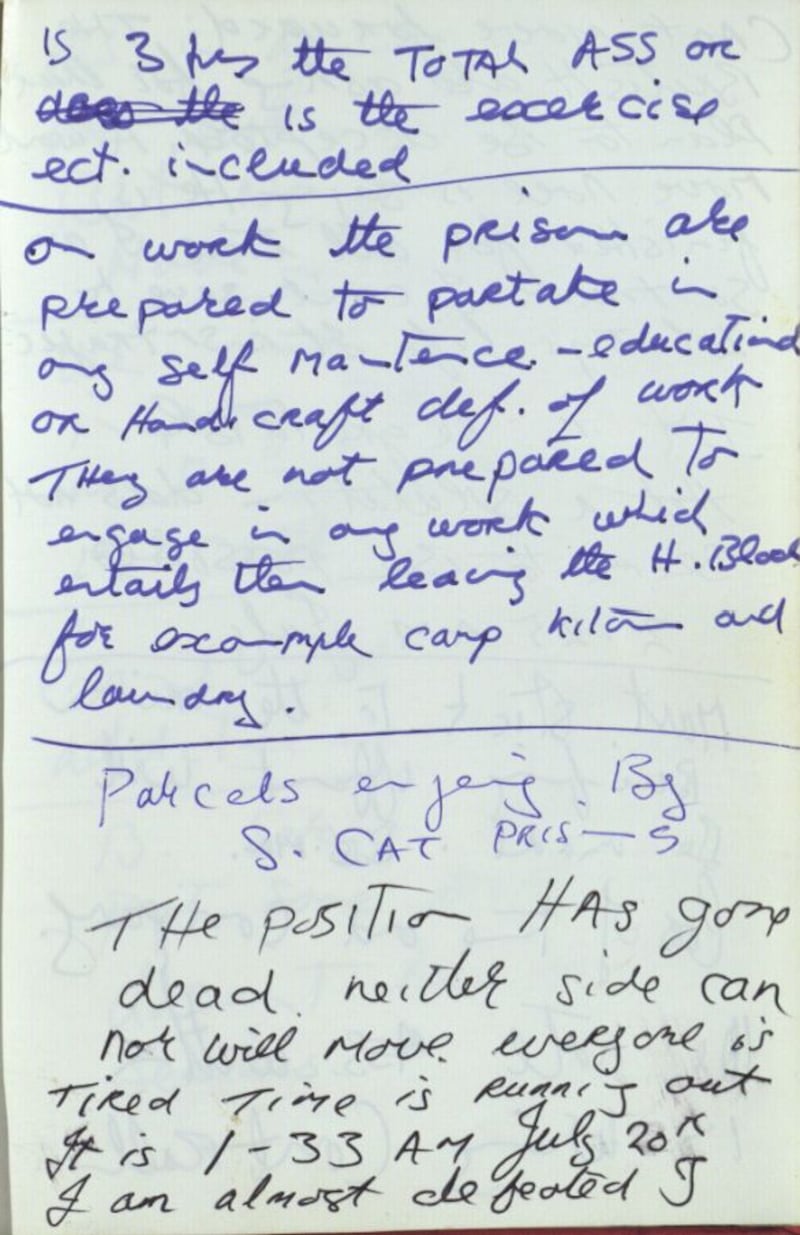 is 3 hrs the TOTAL ASS or
does the is the excercise
ect. included
on work the prison are
prepared to partake in
any self mantence - education
or Handicraft def. of work
THey are not prepared To
engage in any work which
entails them leaving the H. Block
for example camp kitchen and
laundry.
Parcels enjoying By
S. CAT PRISONS
THe position HAs gone
dead. neither side can
nor will move. everyone is
Tired Time is running out
It is 1-33 AM July 20th
I am almost defeated I